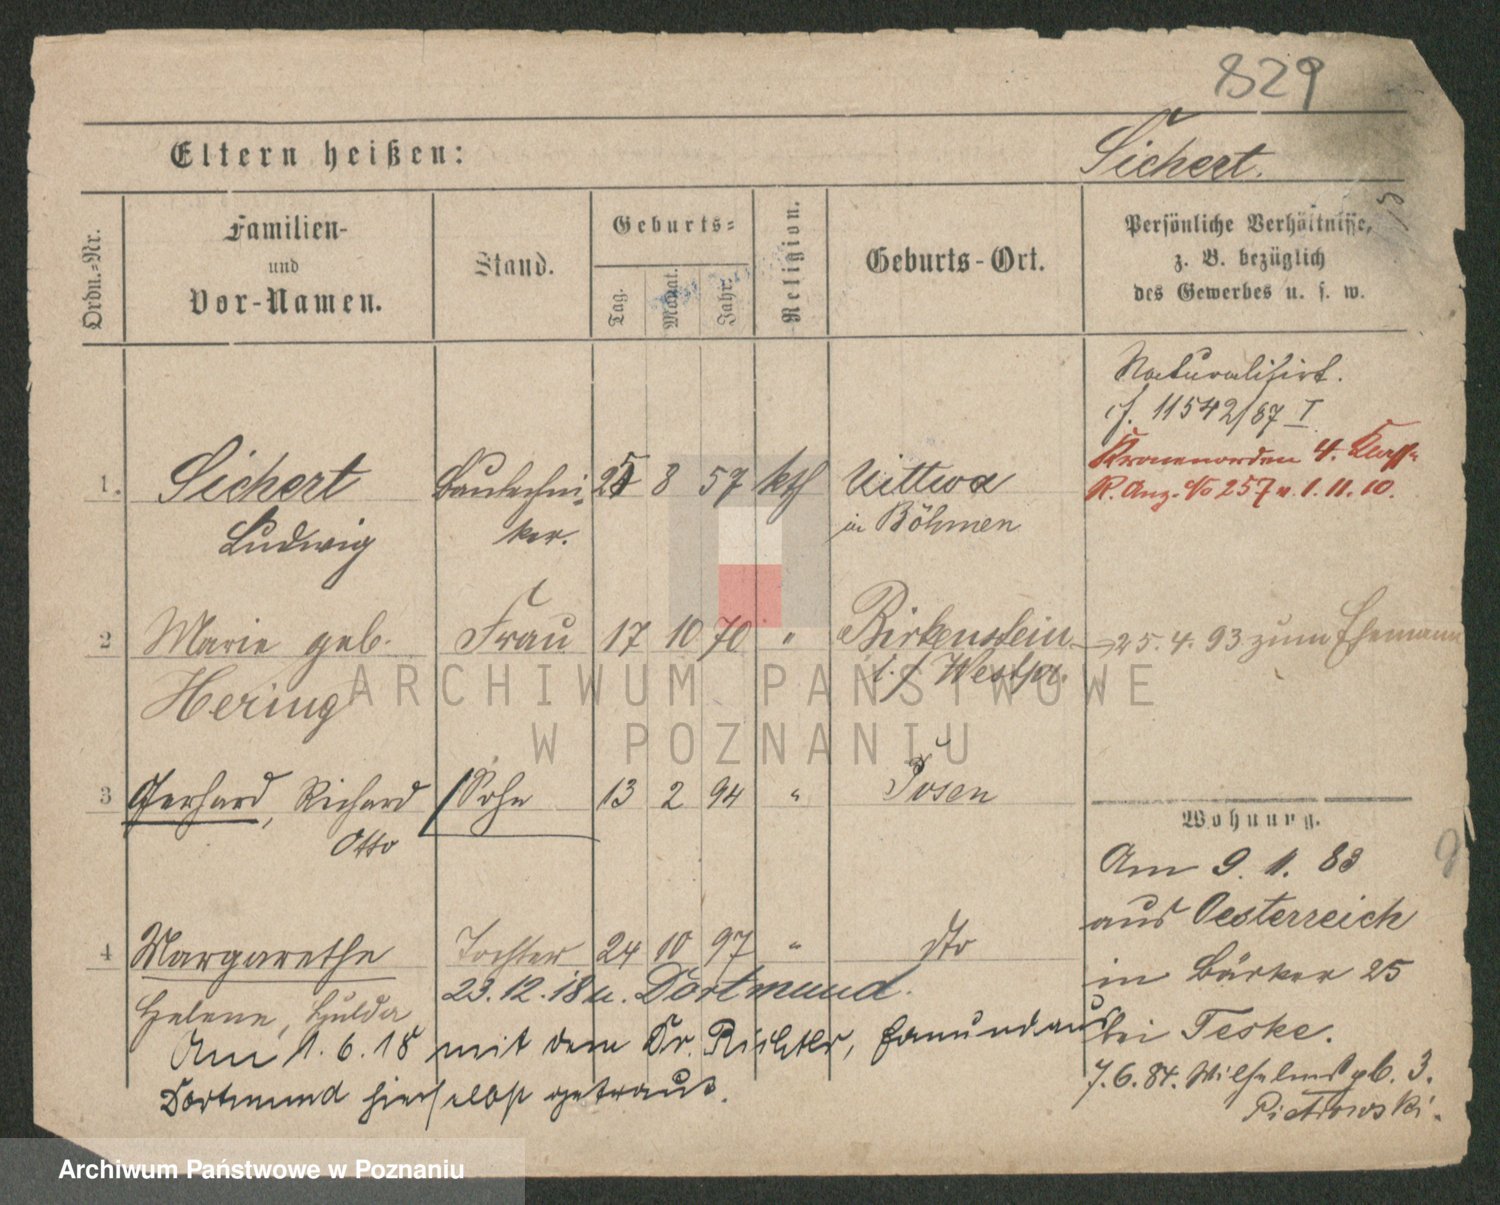 829
Eltern heißen:
Sichert.
Ordn.-Nr.
Familien-
und
Vor-Namen.
Stand.
Geburts-
Tag.
Monat.
Jahr.
Religion.
Geburts-Ort.
Persönliche Verhältnisse,
z. B. bezüglich
des Gewerbes u. s. w.
Naturalisirt.
cf. 11542/87 I
Kronenorden 4. Klasse
R. Anz. No 257 v. 1. 11. 10.
1. Sichert Bautechni- 25 8 57 kth Wittwa
Ludwig ker. in Böhmen
2 Marie geb. Frau 17 10 70 " Birkenstein 25. 4. 93 zum Ehemann
Hering i. / Westpr.
3 Gerhard, Richard Sohn 13 2 94 " Posen
Otto
Wohnung.
Am 9. 1. 83
aus Oesterreich
in Bärker 25
bei Teske.
7. 6. 84. Wilhelmstpl. 3.
Pietrowski.
4 Margarethe Tochter 24 10 97 " dto
Helene, Hulda 23. 12. 18 n. Dortmund.
Am 1. 6. 18 mit dem Dr. Richter, Edmund aus
Dortmund hierselbst getraut.
ARCHIWUM PAŃSTWOWE
W POZNANIU
Archiwum Państwowe w Poznaniu